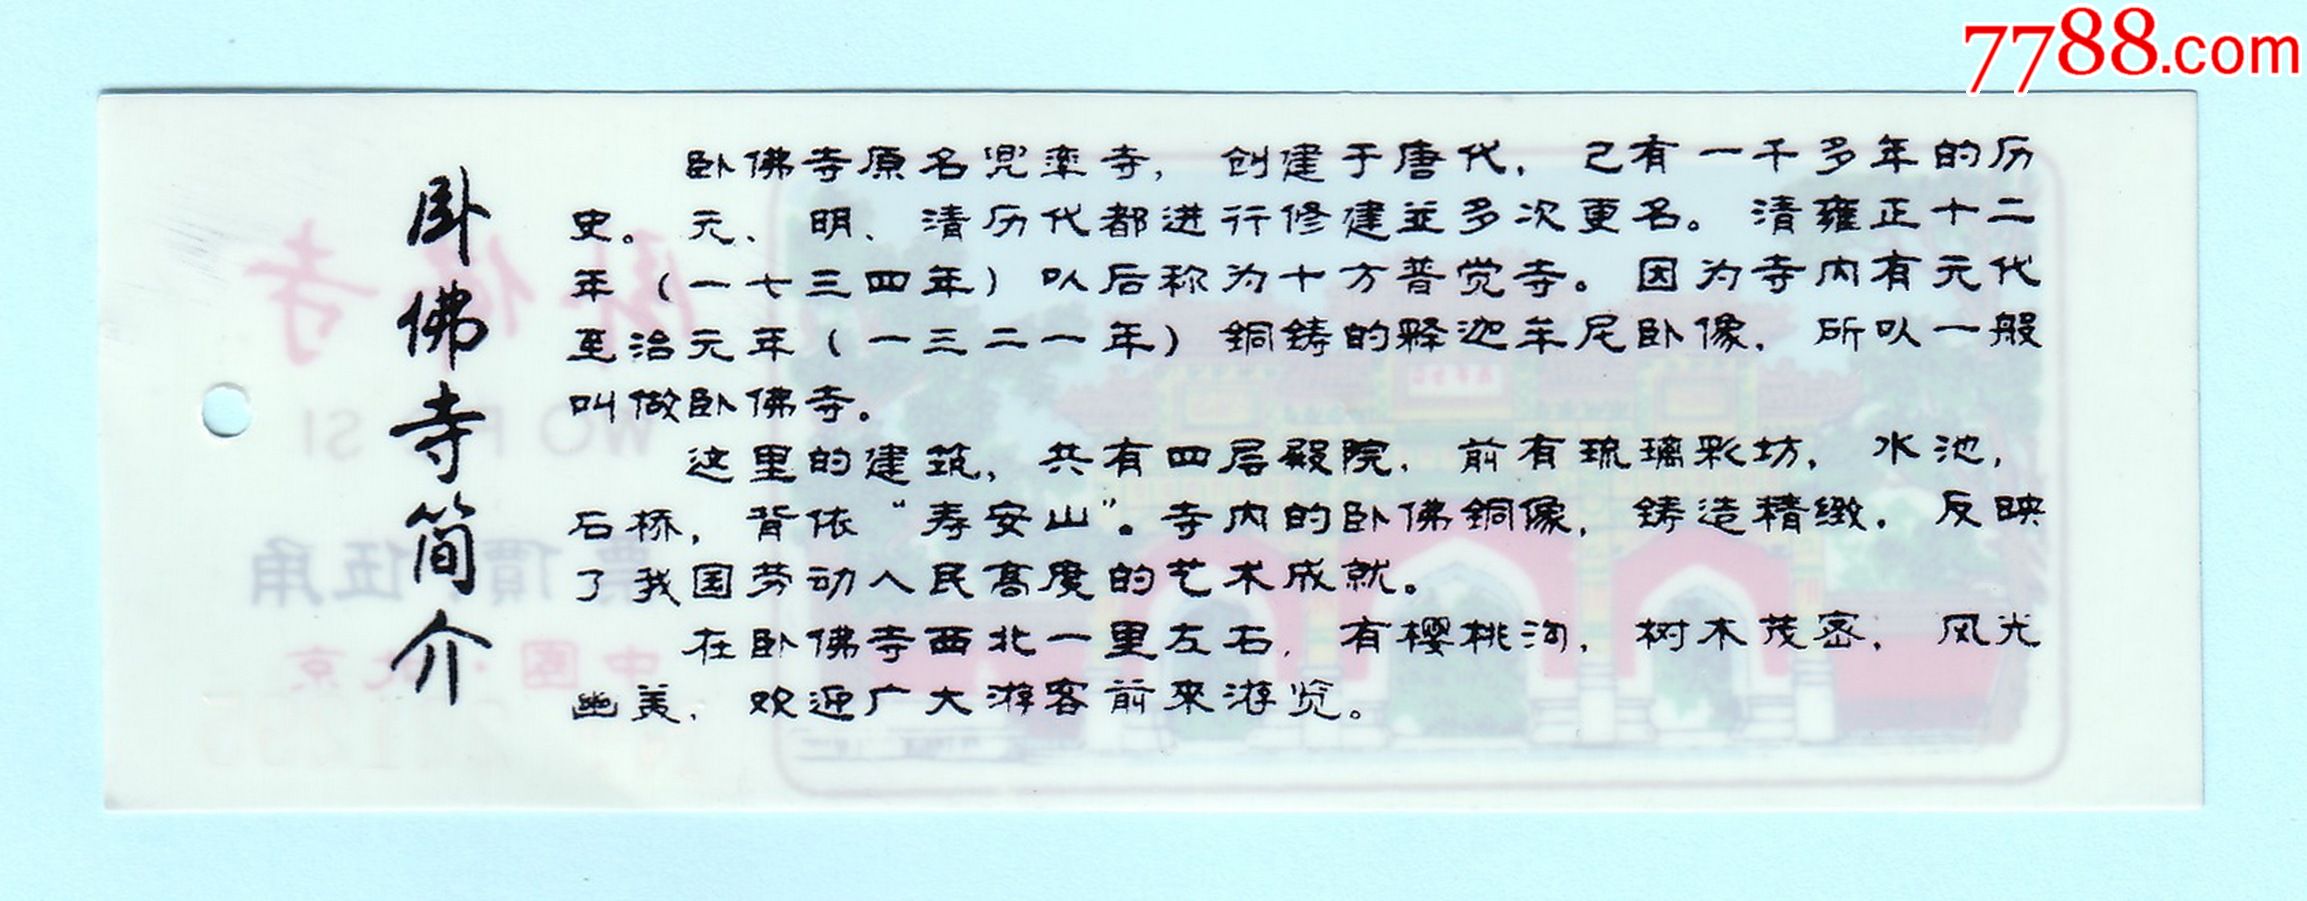 7788.com
卧佛寺简介
卧佛寺原名兜率寺，创建于唐代，已有一千多年的历
史。元、明、清历代都进行修建並多次更名。清雍正十二
年（一七三四年）以后称为十方普觉寺。因为寺内有元代
至治元年（一三二一年）铜铸的释迦牟尼卧像，所以一般
叫做卧佛寺。
这里的建筑，共有四层殿院，前有琉璃彩坊，水池，
石桥，背依“寿安山”。寺内的卧佛铜像，铸造精緻，反映
了我国劳动人民高度的艺术成就。
在卧佛寺西北一里左右，有樱桃沟，树木茂密，风光
幽美，欢迎广大游客前來游览。
卧佛寺
WO FO SI
票價伍角
中國·北京